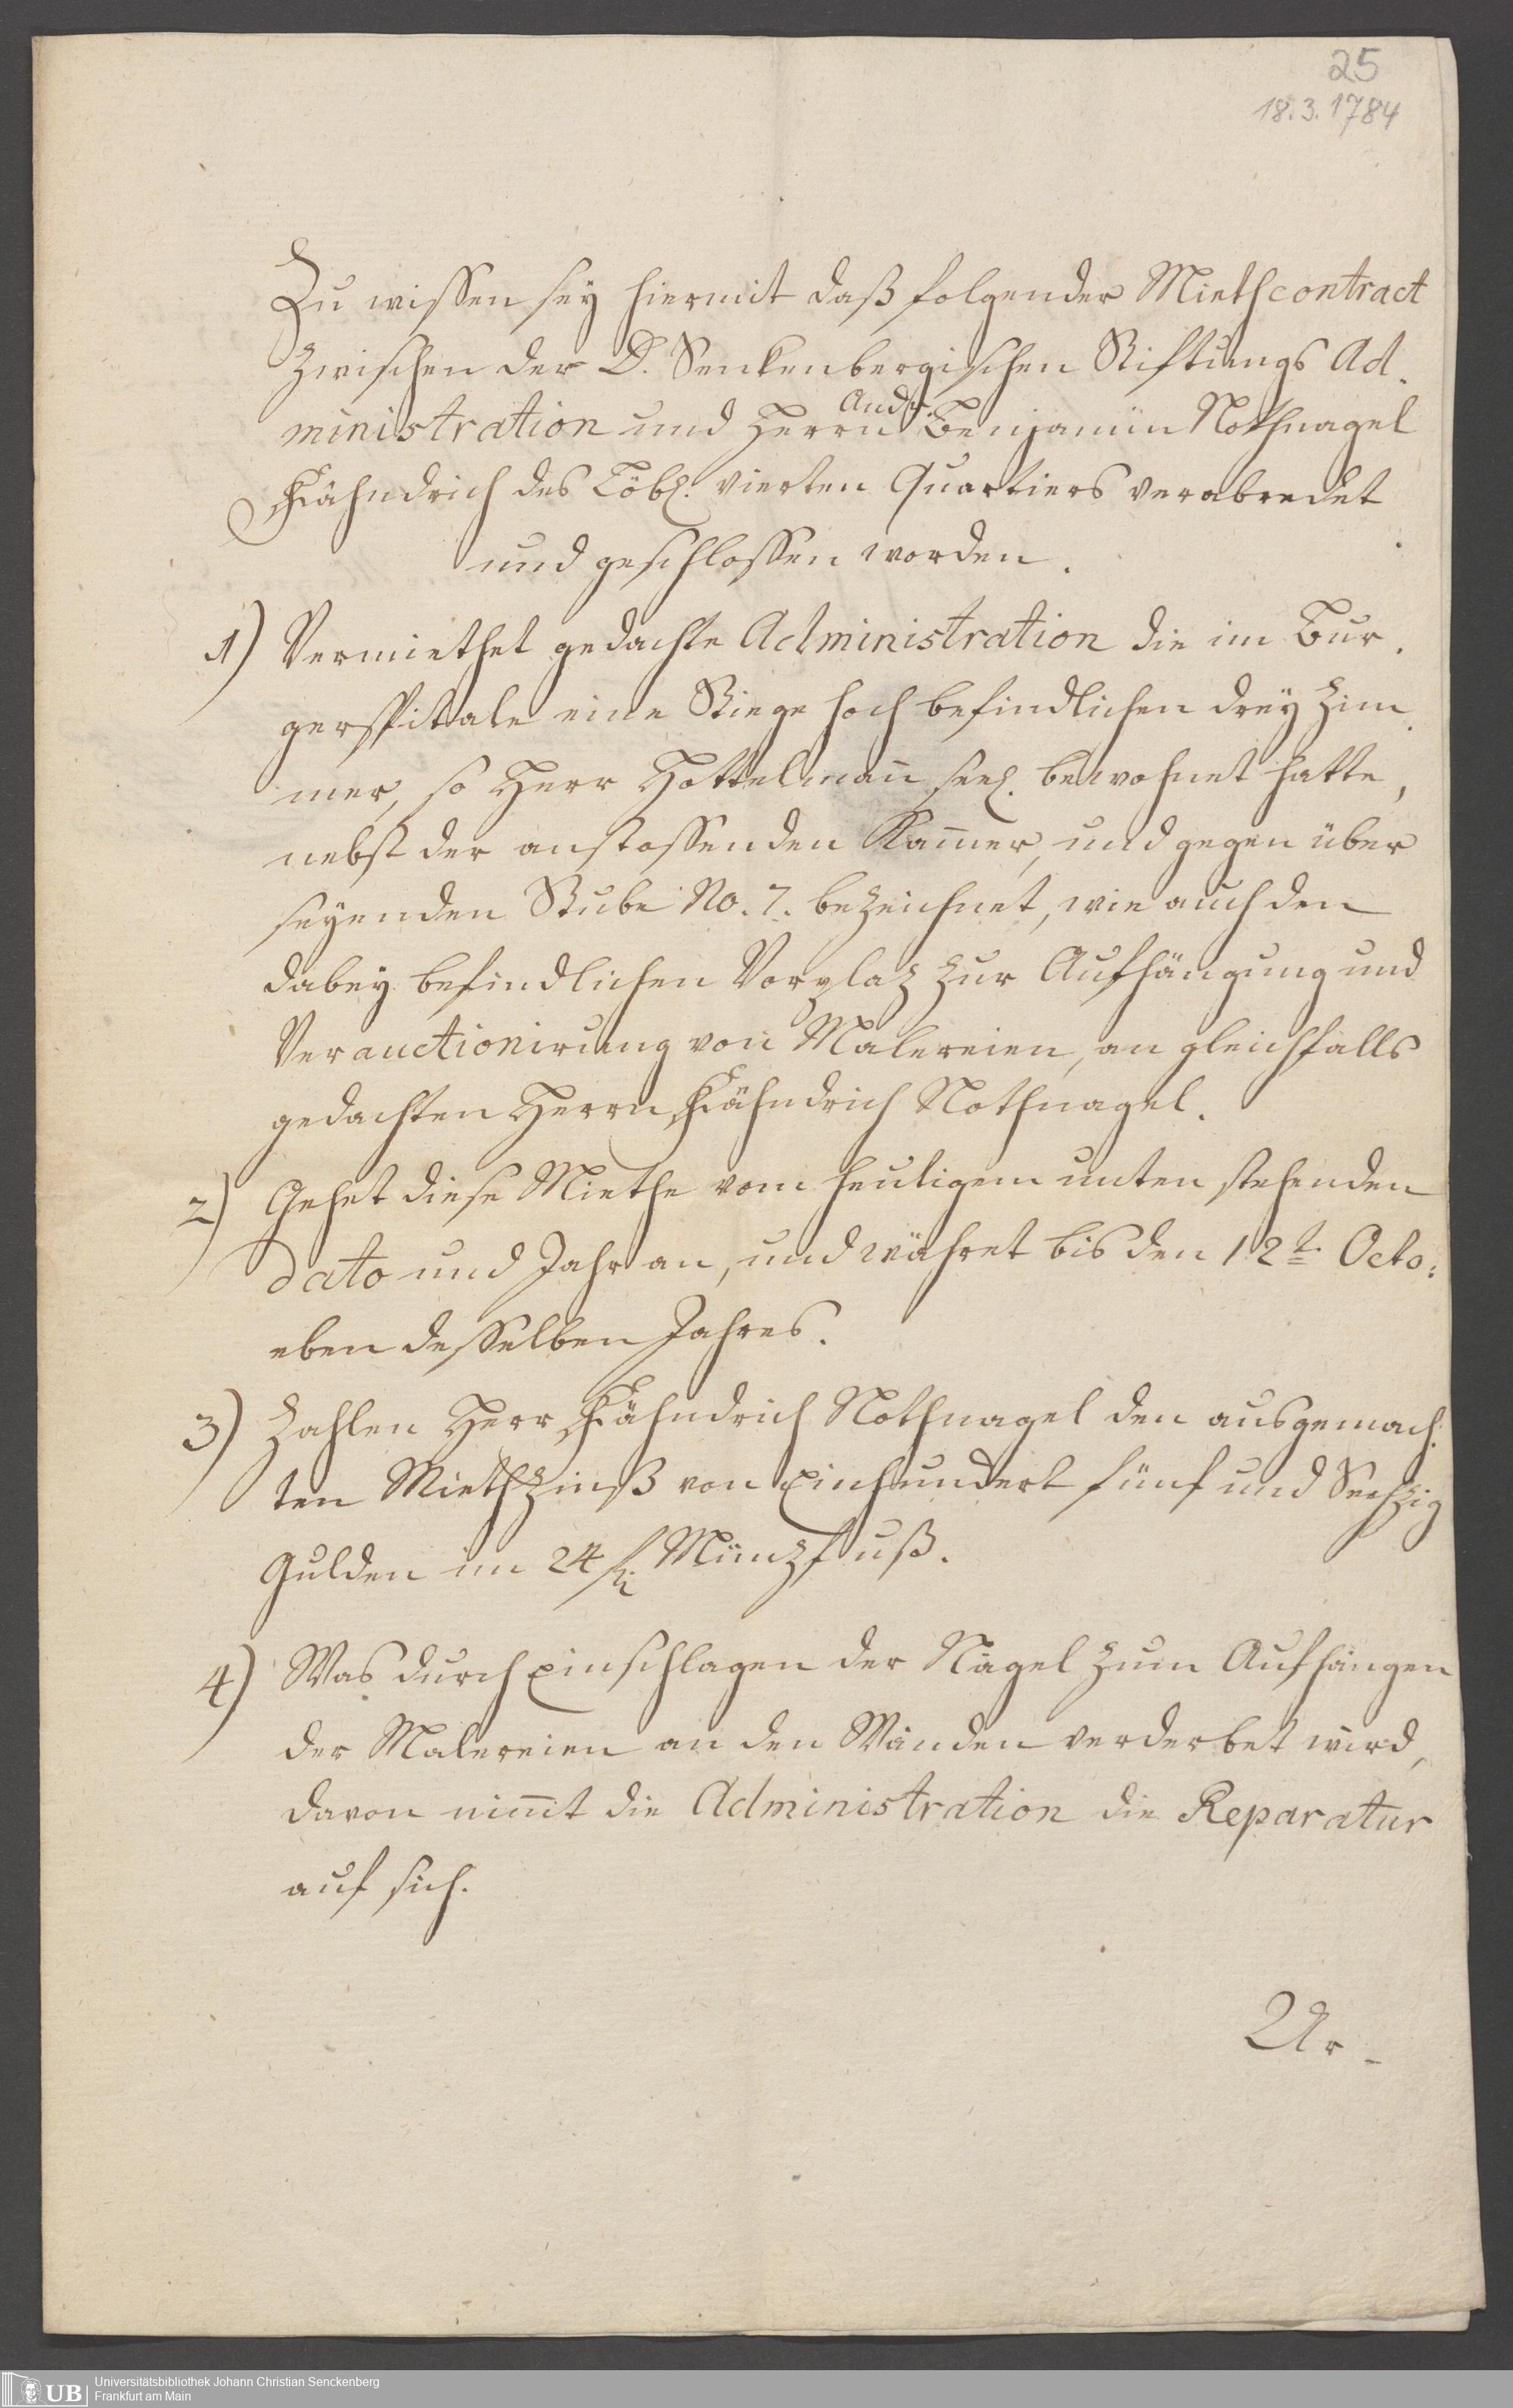 25
18.3.1784
Zu wissen sey hiermit daß folgender Miethcontract
zwischen der D. Senkenbergischen Stiftungs Ad.
ministration und Herrn Andr. Benjamin Nothnagel
Fähndrich des Löbl. vierten Quartiers verabredet
und geschlossen worden.
1) Vermiethet gedachte Administration die im Bur.
gerspitale eine Stiege hoch befindlichen drey Zim.
mer, so Herr Hottelman̄ seel. bewohnet hatte,
nebst der anstossenden Kam̄er, und gegen über
seyenden Stube No. 7. bezeichnet, wie auch den
dabey befindlichen Vorplaz zur Aufhängung und
Verauctionirung von Malereien, an gleichfalls
gedachten Herrn Fähndrich Nothnagel.
2) Gehet diese Miethe vom heutigem unten stehenden
dato und Jahr an, und währet bis den 12t. Octo:
eben desselben Jahres.
3) Zahlen Herr Fähndrich Nothnagel den ausgemach.
ten Miethzinß von Einhundert fünf und Sechzig
Gulden im 24 fl Münzfuß.
4) Was durch Einschlagen der Nägel zum Aufhängen
der Malereien an den Wänden verderbet wird,
davon nim̄t die Administration die Reparatur
auf sich.
Ur-
UB
Universitätsbibliothek Johann Christian Senckenberg
Frankfurt am Main